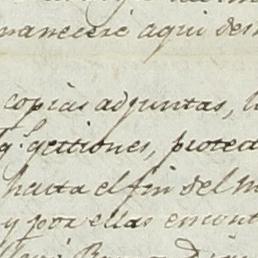 manecere aqui des
copias adjuntas,
q.e gestiones, proted
hasta el fin del m
y por ellas encont